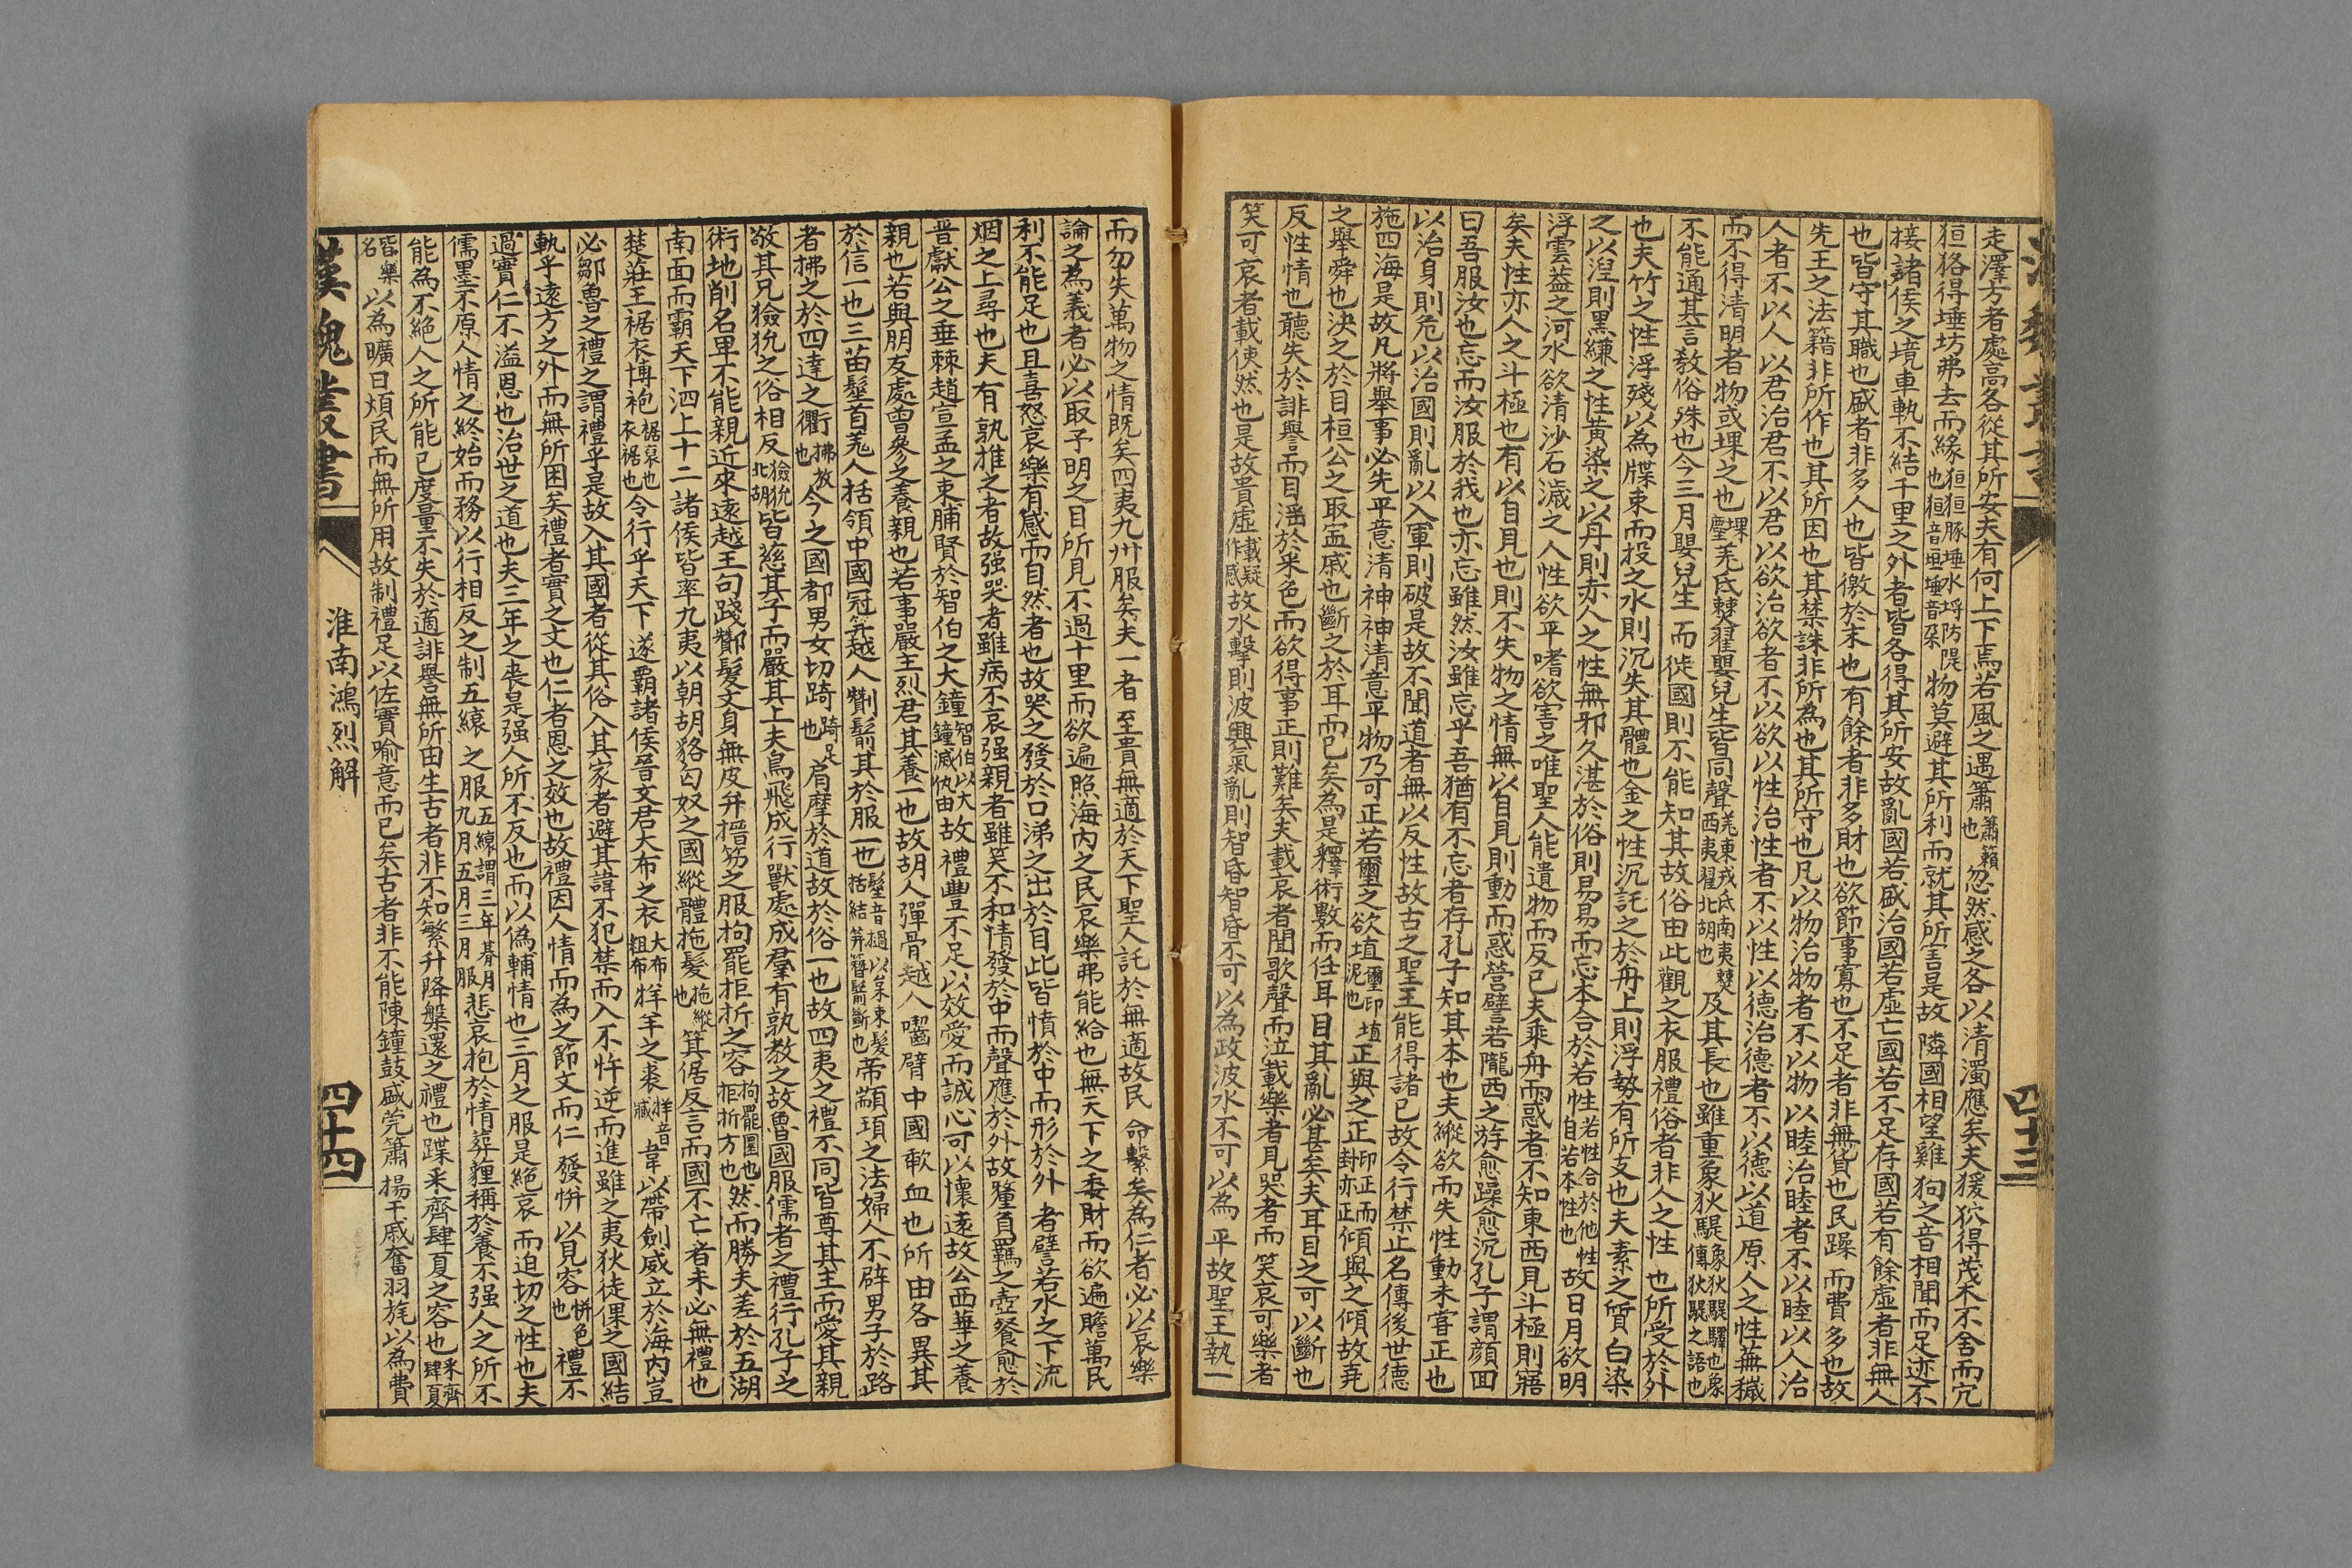 走澤方者處高各從其所安夫有何上下焉若風之遇簫簫籟也忽然感之各以清濁應矣夫猨狖得茂木不舍而穴
狟狢得埵坊弗去而緣狟狟豚埵水埒防隄也狟音垣埵音朶物莫避其所利而就其所害是故隣國相望雞狗之音相聞而足迹不
接諸侯之境車軌不結千里之外者皆各得其所安故亂國若盛治國若虛亡國若不足存國若有餘虛者非無人
也皆守其職也盛者非多人也皆徼於末也有餘者非多財也欲節事寡也不足者非無貨也民躁而費多也故
先王之法籍非所作也其所因也其禁誅非所為也其所守也凡以物治物者不以物以睦治睦者不以睦以人治
人者不以人以君治君不以君以欲治欲者不以欲以性治性者不以性以德治德者不以德以道原人之性蕪穢
而不得清明者物或堁之也堁塵羌氐僰翟嬰兒生皆同聲羌東戎氐南夷僰西夷翟北胡也及其長也雖重象狄騠象狄騠驛也象傳狄騠之語也
不能通其言教俗殊也今三月嬰兒生而徙國則不能知其故俗由此觀之衣服禮俗者非人之性也所受於外
也夫竹之性浮殘以為牒束而投之水則沉失其體也金之性沉託之於舟上則浮勢有所支也夫素之質白染
之以涅則黑縑之性黃染之以丹則赤人之性無邪久湛於俗則易易而忘本合於若性若性合於他性自若本性也故日月欲明
浮雲蓋之河水欲清沙石濊之人性欲平嗜欲害之唯聖人能遺物而反己夫乘舟而惑者不知東西見斗極則寤
矣夫性亦人之斗極也有以自見也則不失物之情無以自見則動而惑營譬若隴西之遊愈躁愈沉孔子謂顏回
曰吾服汝也忘而汝服於我也亦忘雖然汝雖忘乎吾猶有不忘者存孔子知其本也夫縱欲而失性動未嘗正也
以治身則危以治國則亂以入軍則破是故不聞道者無以反性故古之聖王能得諸己故令行禁止名傳後世德
施四海是故凡將舉事必先平意清神神清意平物乃可正若璽之欲埴璽印埴泥也正與之正印正而封亦正傾與之傾故堯
之舉舜也決之於目桓公之取甯戚也斷之於耳而已矣為是釋術數而任耳目其亂必甚矣夫耳目之可以斷也
反性情也聽失於誹譽而目淫於采色而欲得事正則難矣夫載哀者聞歌聲而泣載樂者見哭者而笑哀可樂者
笑可哀者載使然也是故貴虛載疑作感故水擊則波興氣亂則智昏智昏不可以為政波水不可以為平故聖王執一
四十三
而勿失萬物之情既矣四夷九州服矣夫一者至貴無適於天下聖人託於無適故民命繫矣為仁者必以哀樂
論之為義者必以取予明之目所見不過十里而欲遍照海內之民哀樂弗能給也無天下之委財而欲遍贍萬民
利不能足也且喜怒哀樂有感而自然者也故哭之發於口涕之出於目此皆憤於中而形於外者譬若水之下流
烟之上尋也夫有孰推之者故强哭者雖病不哀强親者雖笑不和情發於中而聲應於外故釐負羈之壺餐愈於
晋獻公之垂棘趙宣孟之束脯賢於智伯之大鐘智伯以大鐘滅仇由故禮豐不足以效愛而誠心可以懷遠故公西華之養
親也若與朋友處曾參之養親也若事嚴主烈君其養一也故胡人彈骨越人嚙臂中國歃血也所由各異其
於信一也三苗髽首羌人括領中國冠笄越人劗鬋其於服一也髽音撾以枲束髮括結笄簪鬋斷也帝顓頊之法婦人不辟男子於路
者拂之於四達之衢拂放也今之國都男女切踦踦足也肩摩於道故於俗一也故四夷之禮不同皆尊其主而愛其親
敬其兄獫狁之俗相反獫狁北胡皆慈其子而嚴其上夫鳥飛成行獸處成羣有孰教之故魯國服儒者之禮行孔子之
術地削名卑不能親近來遠越王句踐劗髮文身無皮弁搢笏之服拘罷拒折之容拘罷圜也拒折方也然而勝夫差於五湖
南面而霸天下泗上十二諸侯皆率九夷以朝胡狢匈奴之國縱體拖髮拖縱也箕倨反言而國不亡者未必無禮也
楚莊王裾衣博袍裾裒也衣裾也令行乎天下遂霸諸侯晉文君大布之衣大布粗布牂羊之裘牂音臧韋以帶劍威立於海內豈
必鄒魯之禮之謂禮乎是故入其國者從其俗入其家者避其諱不犯禁而入不忤逆而進雖之夷狄徒倮之國結
軌乎遠方之外而無所困矣禮者實之文也仁者恩之效也故禮因人情而為之節文而仁發恲以見容恲色也禮不
過實仁不溢恩也治世之道也夫三年之喪是强人所不反也而以偽輔情也三月之服是絕哀而迫切之性也夫
儒墨不原人情之終始而務以行相反之制五縗之服五縗謂三年朞月九月五月三月服悲哀抱於情葬薶稱於養不强人之所不
能為不絕人之所能已度量不失於適誹譽無所由生古者非不知繁升降槃還之禮也蹀采齊肆夏之容也采齊肆夏
皆樂名以為曠日煩民而無所用故制禮足以佐實喻意而已矣古者非不能陳鐘鼓盛筦簫揚干戚奮羽旄以為費
漢魏叢書
淮南鴻烈解
四十四